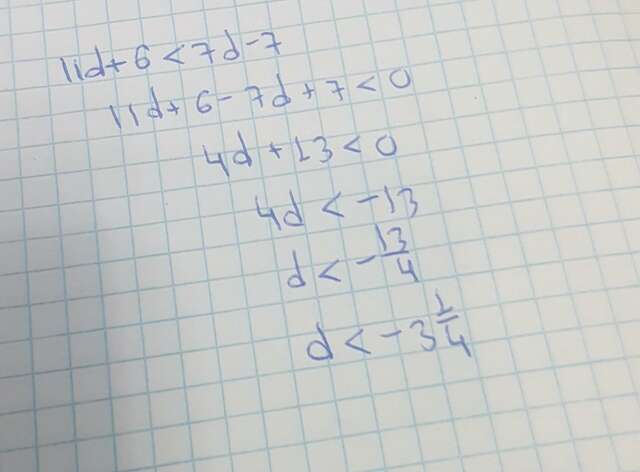 11d+6<7d-7
11d+6-7d+7<0
4d+13<0
4d<-13
d<-13/4
d<-3 1/4